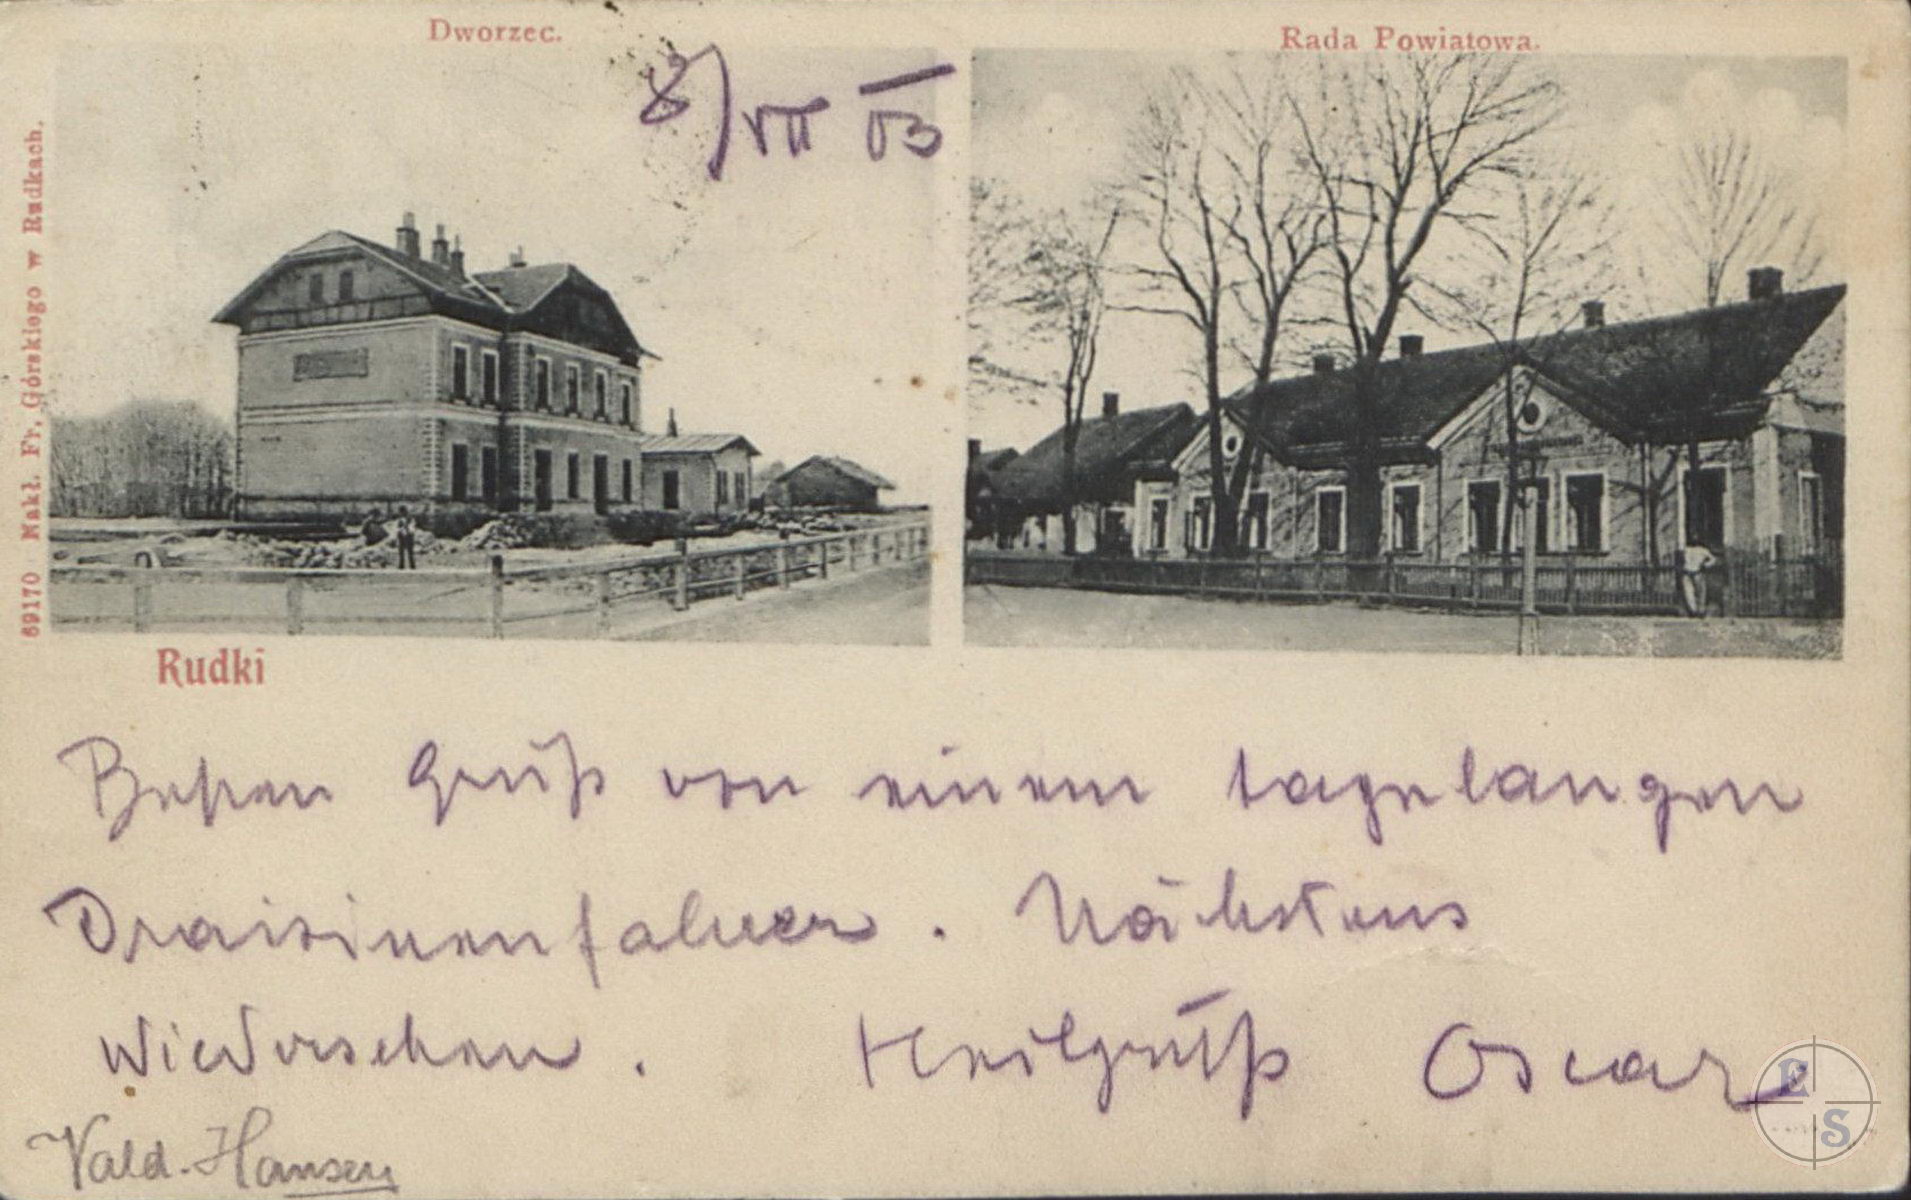 Dworzec.
Rada Powiatowa.
8/VII 03
69170 Nakł. Fr. Górskiego w Rudkach.
Rudki
Besten Gruß von einem tagelangen
Draisinenfahrer. Nächstens
Wiedersehen. Heilgruß Oscar
Vald. Hansen
E
S